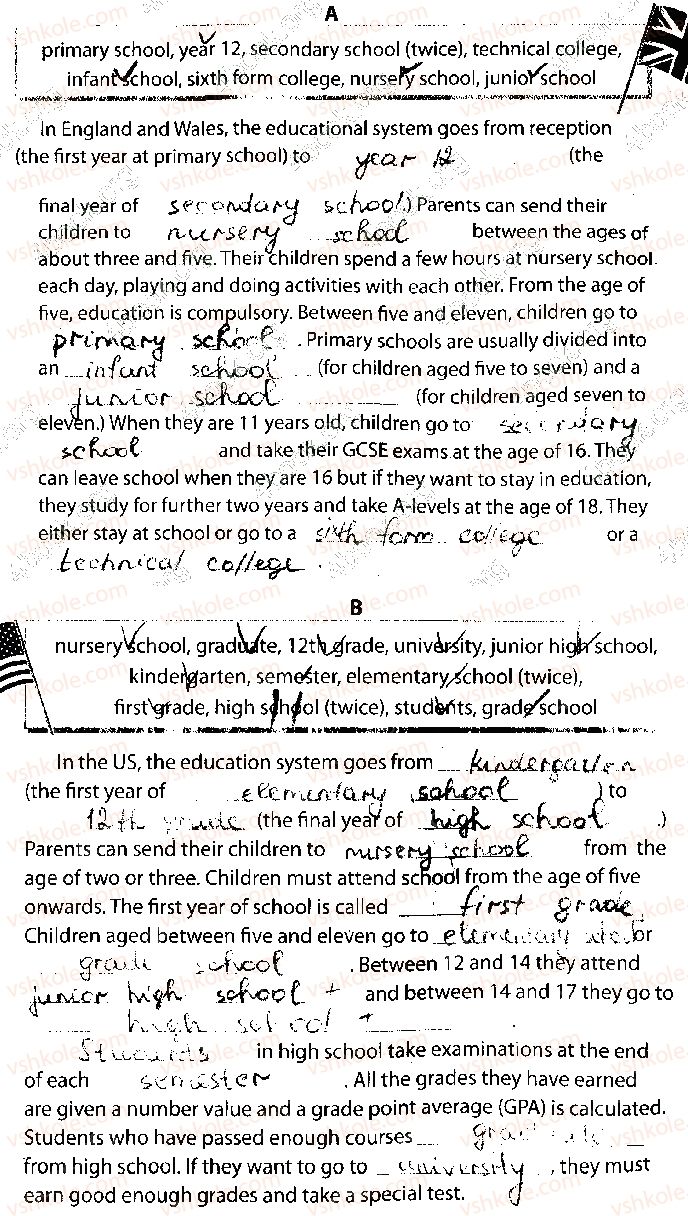 A
primary school, year 12, secondary school (twice), technical college,
infant school, sixth form college, nursery school, junior school
In England and Wales, the educational system goes from reception
(the first year at primary school) to year 12 (the
final year of secondary school.) Parents can send their
children to nursery school between the ages of
about three and five. Their children spend a few hours at nursery school
each day, playing and doing activities with each other. From the age of
five, education is compulsory. Between five and eleven, children go to
primary school. Primary schools are usually divided into
an infant school (for children aged five to seven) and a
junior school (for children aged seven to
eleven.) When they are 11 years old, children go to secondary
school and take their GCSE exams at the age of 16. They
can leave school when they are 16 but if they want to stay in education,
they study for further two years and take A-levels at the age of 18. They
either stay at school or go to a sixth form college or a
technical college.
B
nursery school, graduate, 12th grade, university, junior high school,
kindergarten, semester, elementary school (twice),
first grade, high school (twice), students, grade school
In the US, the education system goes from kindergarten
(the first year of elementary school) to
12th grade (the final year of high school.)
Parents can send their children to nursery school from the
age of two or three. Children must attend school from the age of five
onwards. The first year of school is called first grade
Children aged between five and eleven go to elementary or
grade school. Between 12 and 14 they attend
junior high school + and between 14 and 17 they go to
high school +
Students in high school take examinations at the end
of each semester. All the grades they have earned
are given a number value and a grade point average (GPA) is calculated.
Students who have passed enough courses graduate
from high school. If they want to go to university, they must
earn good enough grades and take a special test.